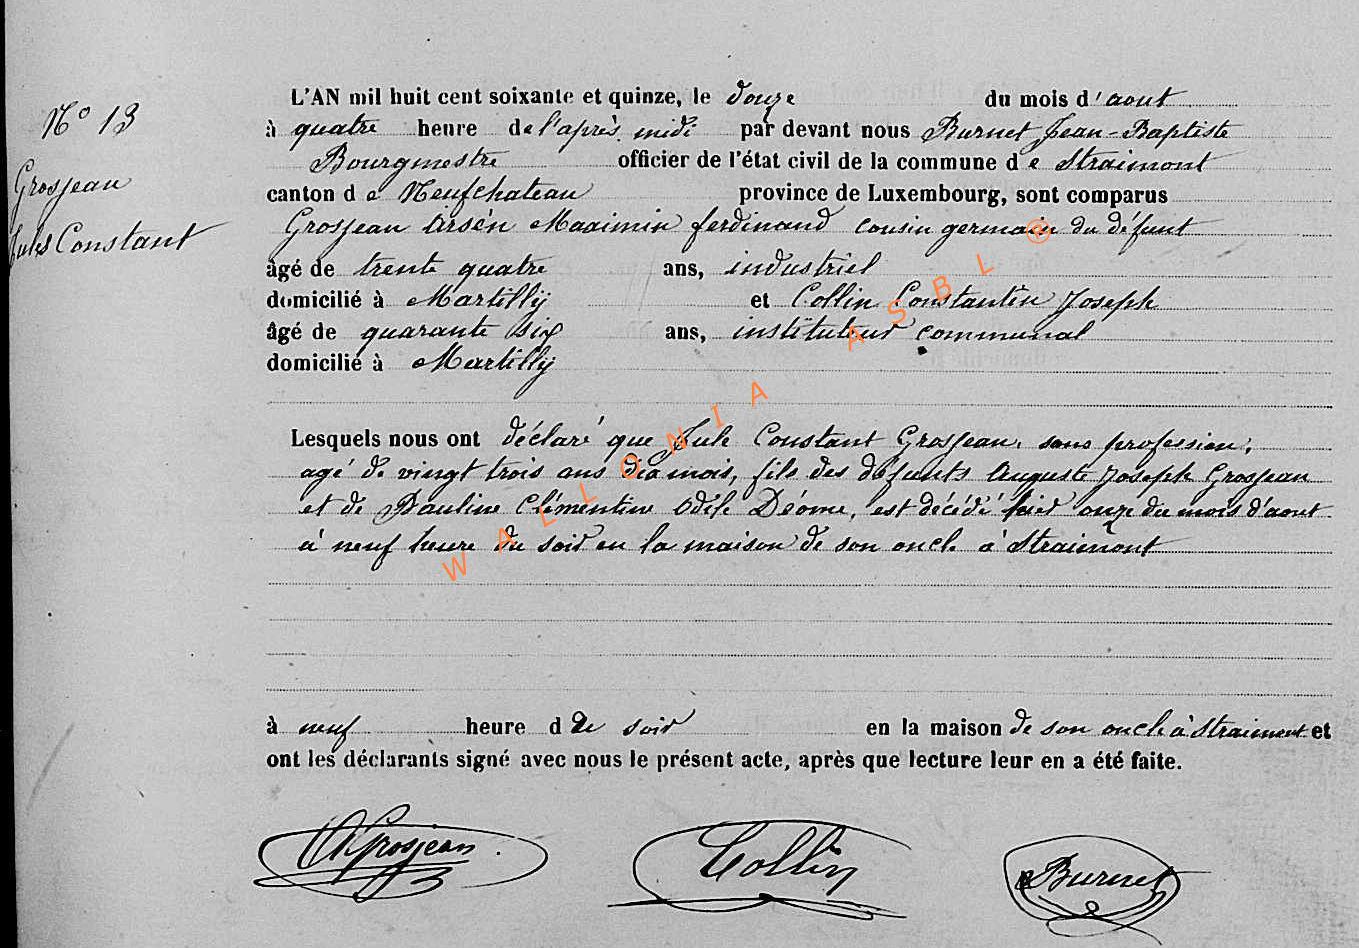 N° 13
Grosjean
Jules Constant
L'AN mil huit cent soixante et quinze, le douze du mois d'aout
à quatre heure de l'après midi par devant nous Burnet Jean-Baptiste
Bourgmestre officier de l'état civil de la commune de Straimont
canton de Neufchateau province de Luxembourg, sont comparus
Grosjean Arsèn Maximin ferdinand cousin germain du défunt
âgé de trente quatre ans, industriel
domicilié à Martilly et Collin Constantin Joseph
âgé de quarante six ans, instituteur communal
domicilié à Martilly
Lesquels nous ont déclaré que Jule Constant Grosjean, sans profession,
agé de vingt trois ans dix mois, fils des défunts Auguste Joseph Grosjean
et de Pauline Clémentine Odile Déome, est décédé hier onze du mois d'aout
à neuf heure du soir en la maison de son oncle à Straimont
à neuf heure d de soir en la maison de son oncle à Straimont et
ont les déclarants signé avec nous le présent acte, après que lecture leur en a été faite.
AGrosjean Collin Burnet
WALLONIA ASBL ®